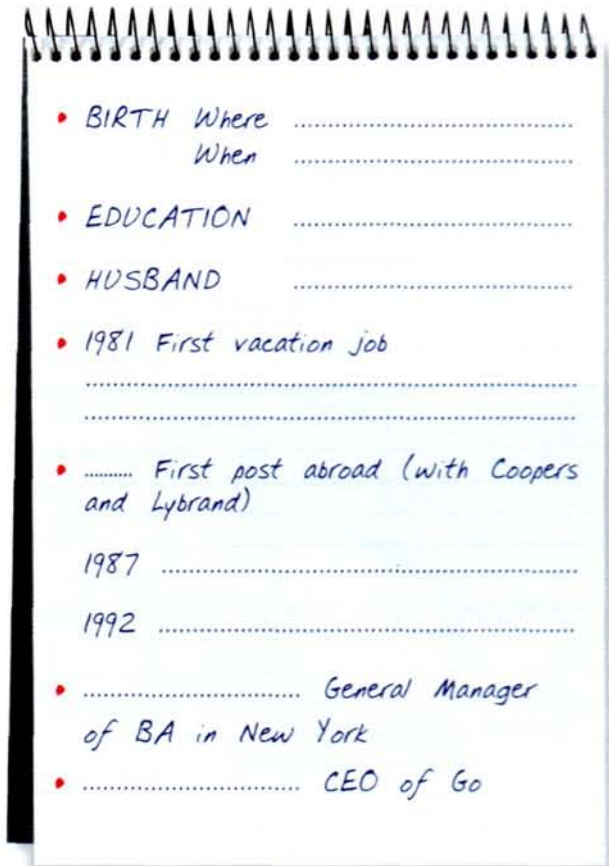 • BIRTH Where ..............................
When ..............................
• EDUCATION ..............................
• HUSBAND ..............................
• 1981 First vacation job
............................................................
............................................................
• .......... First post abroad (with Coopers
and Lybrand)
1987 ..................................................
1992 ..................................................
• .............................. General Manager
of BA in New York
• .............................. CEO of Go